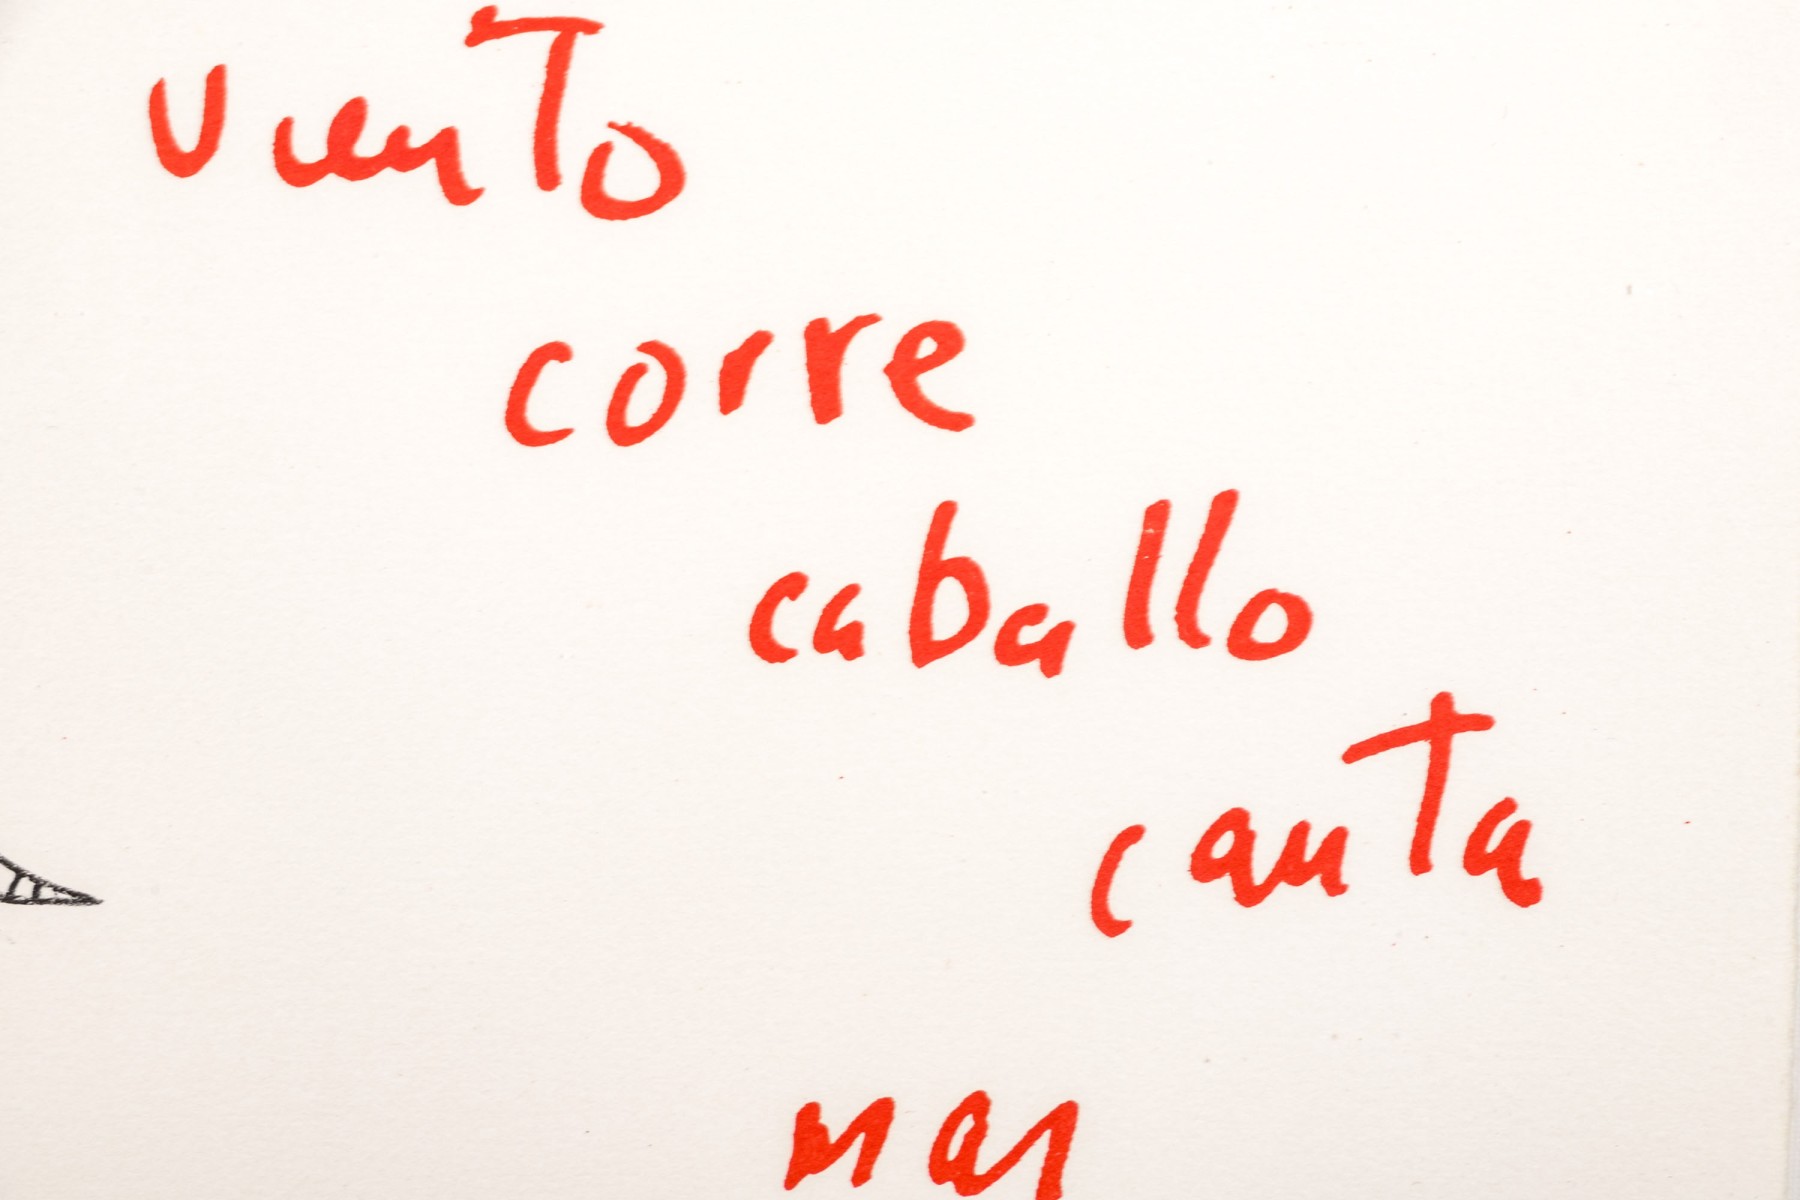 viento
corre
caballo
canta
mar